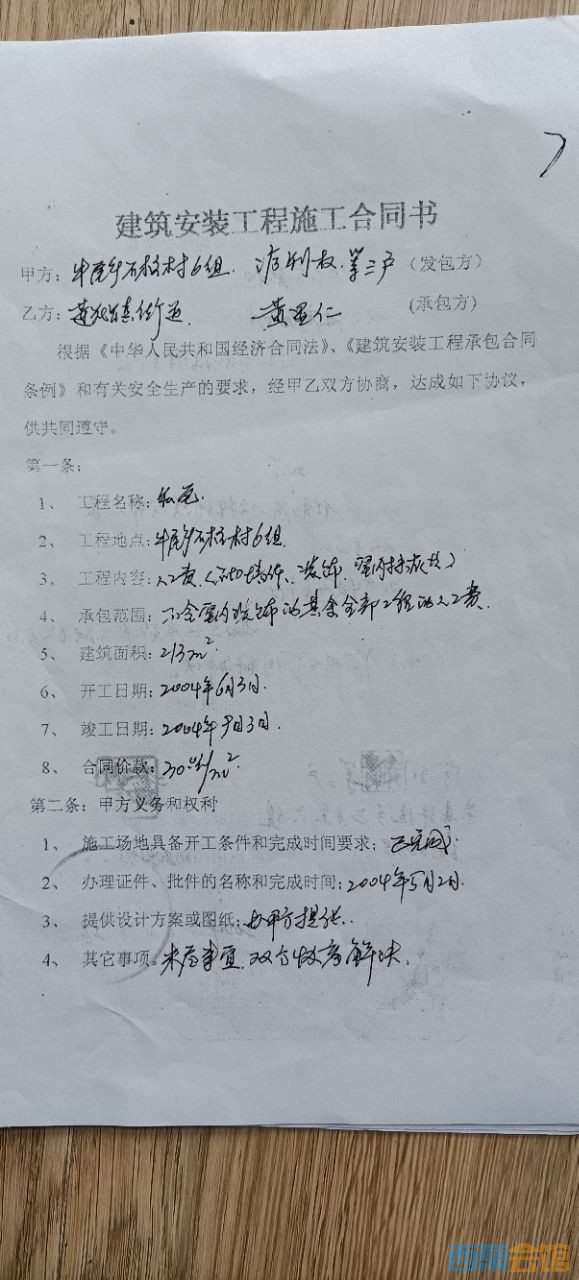 建筑安装工程施工合同书
甲方：牛尾乡石柱村6组. 权.等三户（发包方）
乙方：镇街 黄 仁 (承包方)
根据《中华人民共和国经济合同法》、《建筑安装工程承包合同
条例》和有关安全生产的要求，经甲乙双方协商，达成如下协议，
供共同遵守。
第一条：
1、 工程名称：私宅.
2、 工程地点：牛尾乡石柱村6组.
3、 工程内容：人工费
4、 承包范围：不含室内装饰的其余全部工程的人工费.
5、 建筑面积：213m²
6、 开工日期：2004年6月3日.
7、 竣工日期：2004年9月3日.
8、 合同价款：/m²
第二条：甲方义务和权利
1、 施工场地具备开工条件和完成时间要求：已完成
2、 办理证件、批件的名称和完成时间：2004年5月2日.
3、 提供设计方案或图纸：由甲方提供.
4、 其它事项。未尽事宜.双方协商解决.
西泉会馆